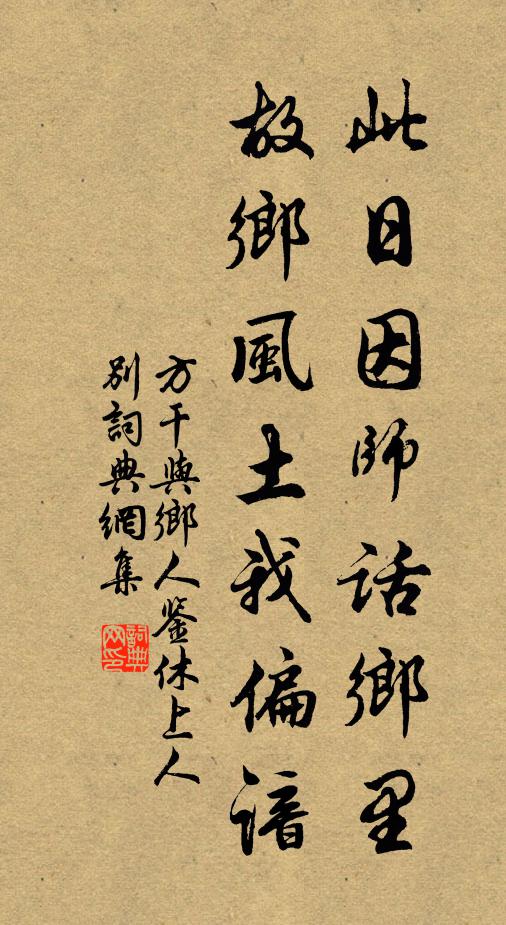 此日因師話鄉里
故鄉風土我偏諳
方干與鄉人鉴休上人
別詞典網集
詞典
网印